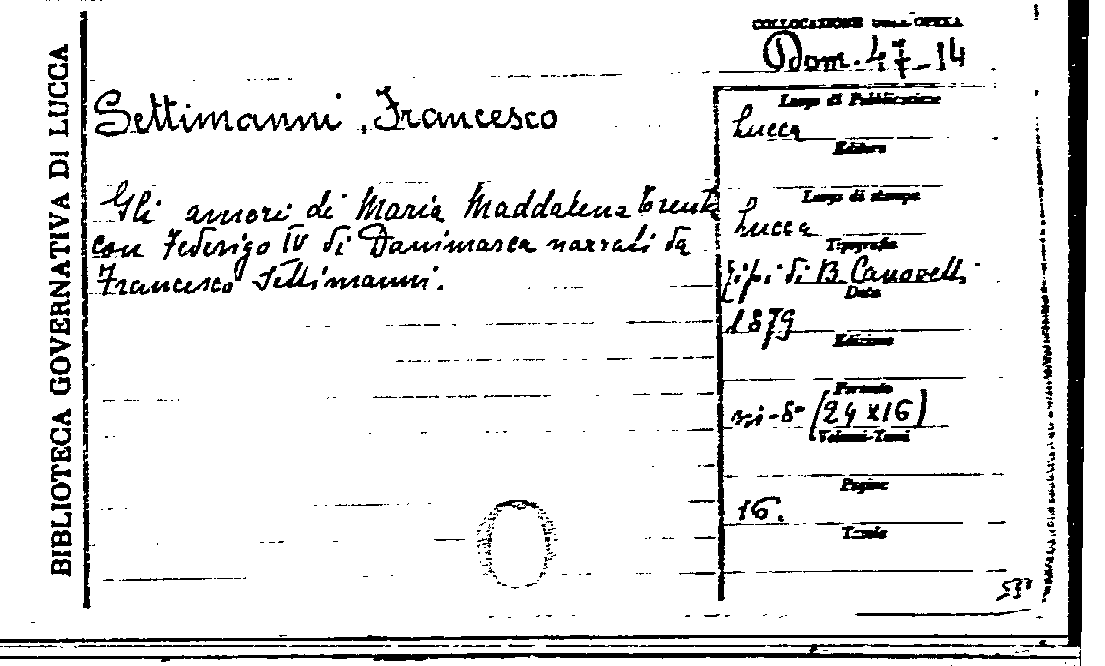 BIBLIOTECA GOVERNATIVA DI LUCCA
COLLOCAZIONE DELL'OPERA
Dom. 47-14
Settimanni, Francesco
Gli amori di Maria Maddalena Trenta
con Federigo IV di Danimarca narrati da
Francesco Settimanni.
Luogo di Pubblicazione
Lucca
Editore
Luogo di stampa
Lucca
Tipografia
Tipi di B. Canovetti
Data
1879
Edizione
Formato
in-8° (24 x 16)
Volumi-Tomi
Pagine
16.
Tavole